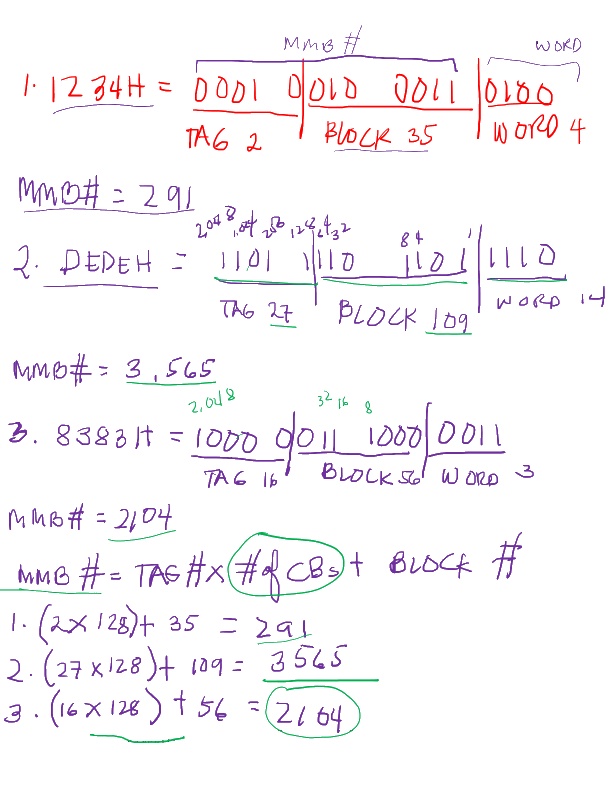 MMB # WORD
1. 1234H = 0001 0|010 0011|0100
TAG 2 BLOCK 35 WORD 4
MMB# = 291
2,048 1,024 256 128 64 32 8 4 1
2. DEDEH = 1101 1|110 1101|1110
TAG 27 BLOCK 109 WORD 14
MMB# = 3,565
2,048 32 16 8
3. 8383H = 1000 0|011 1000|0011
TAG 16 BLOCK 56 WORD 3
MMB# = 2,104
MMB # = TAG # X # of CBs + BLOCK #
1. (2 X 128) + 35 = 291
2. (27 X 128) + 109 = 3565
3. (16 X 128) + 56 = 2104